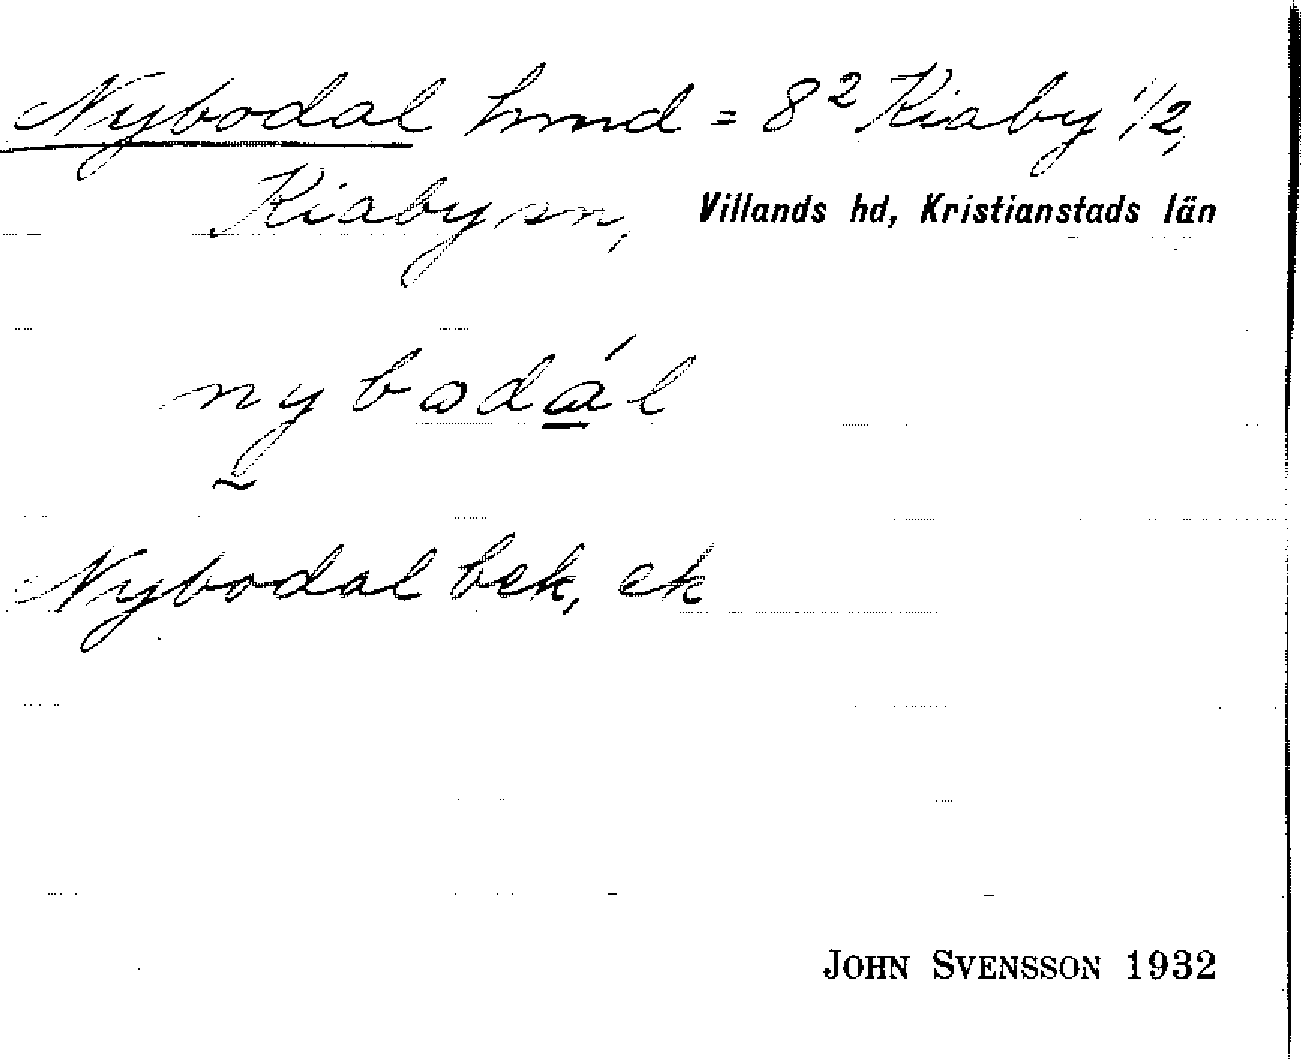 Nybodal hmnd = 8² Kiaby 1/2,
Kiaby sn, Villands hd, Kristianstads län
nybodál
Nybodal bek, ek
JOHN SVENSSON 1932